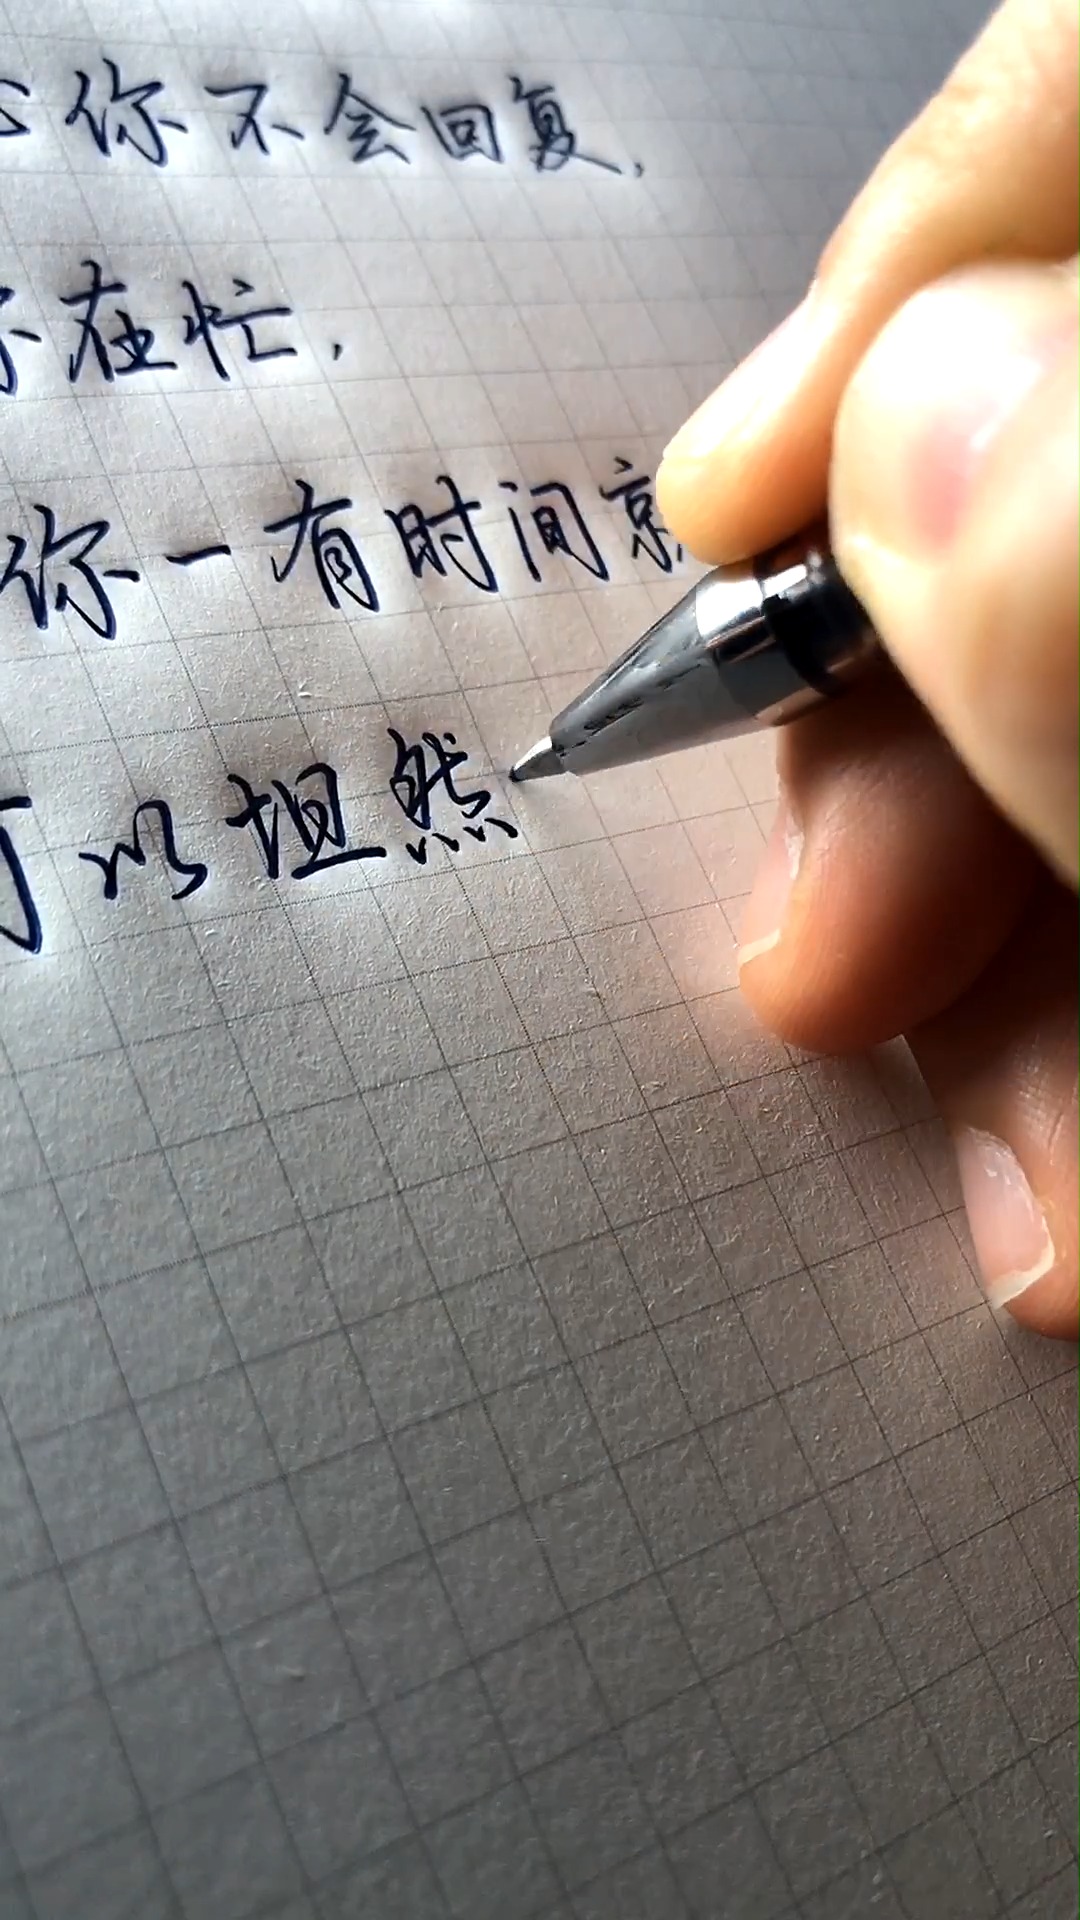 你不会回复，
在忙，
你一有时间就
可以坦然